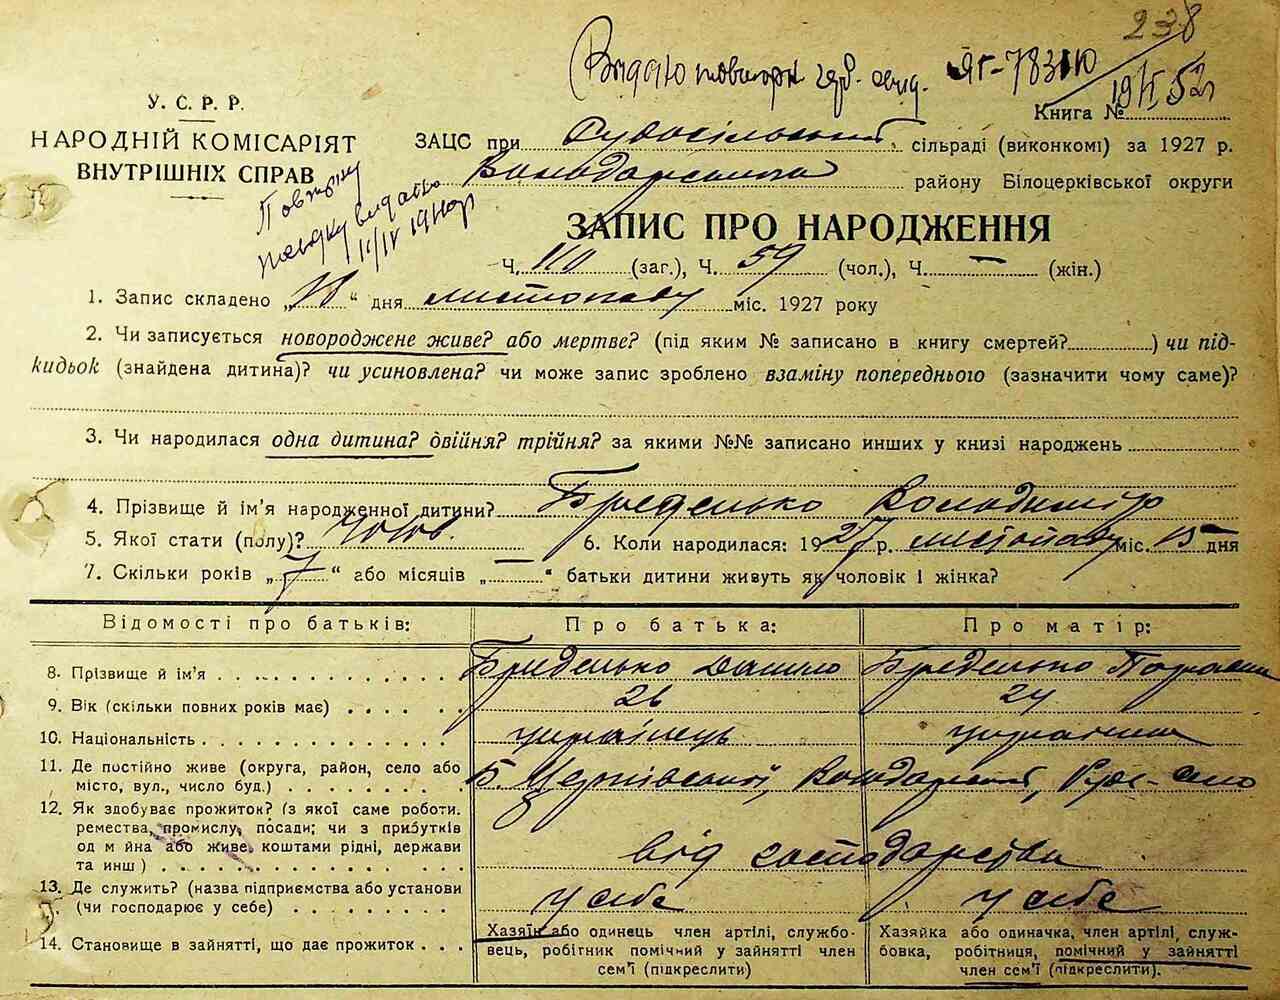 238
Видано повторн посв. свид. ЯГ-783110
19/II 52
Книга №
У. С. Р. Р.
НАРОДНІЙ КОМІСАРІЯТ
ВНУТРІШНІХ СПРАВ
Повторну
довідку видано
11/IV 1940р
ЗАЦС при Рудосільській сільраді (виконкомі) за 1927 р.
Володарського району Білоцерківської округи
ЗАПИС ПРО НАРОДЖЕННЯ
Ч. 110 (заг.), Ч. 59 (чол.), Ч. — (жін.)
1. Запис складено „ “ дня листопаду міс. 1927 року
2. Чи записується новороджене живе? або мертве? (під яким № записано в книгу смертей? ) чи під-
кидьок (знайдена дитина)? чи усиновлена? чи може запис зроблено взаміну попереднього (зазначити чому саме)?
3. Чи народилася одна дитина? двійня? трійня? за якими №№ записано инших у книзі народжень
4. Прізвище й ім'я народженної дитини? Бределько Володимір
5. Якої стати (полу)? Чолов. 6. Коли народилася: 1927 р. листопаду міс. 15 дня
7. Скільки років „ 7 “ або місяців „ — “ батьки дитини живуть як чоловік і жінка?
Відомості про батьків: Про батька: Про матір:
8. Прізвище й ім'я Бределько Данило Бределько Параска
9. Вік (скільки повних років має) 26 24
10. Національність українець українка
11. Де постійно живе (округа, район, село або
місто, вул., число буд.) Б. Церківської, Володарский, Руде-село
12. Як здобуває прожиток? (з якої саме роботи.
ремества, промислу, посади; чи з прибутків
од м йна або живе коштами рідні, держави
та инш) від господарства
13. Де служить? (назва підприємства або установи
(чи господарює у себе) у себе у себе
14. Становище в зайнятті, що дає прожиток
Хазяїн або одинець член артілі, службо-
вець, робітник помічний у зайнятті член
сем'ї (підкреслити)
Хазяйка або одиначка, член артілі, служ-
бовка, робітниця, помічний у зайнятті
член сем'ї (підкреслити).